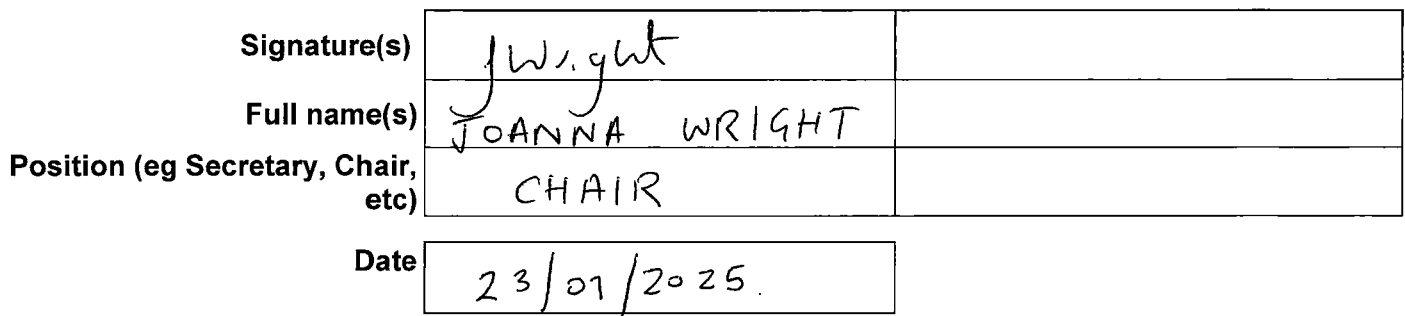 Signature(s) JWright
Full name(s) JOANNA WRIGHT
Position (eg Secretary, Chair,
etc) CHAIR
Date 23/01/2025.